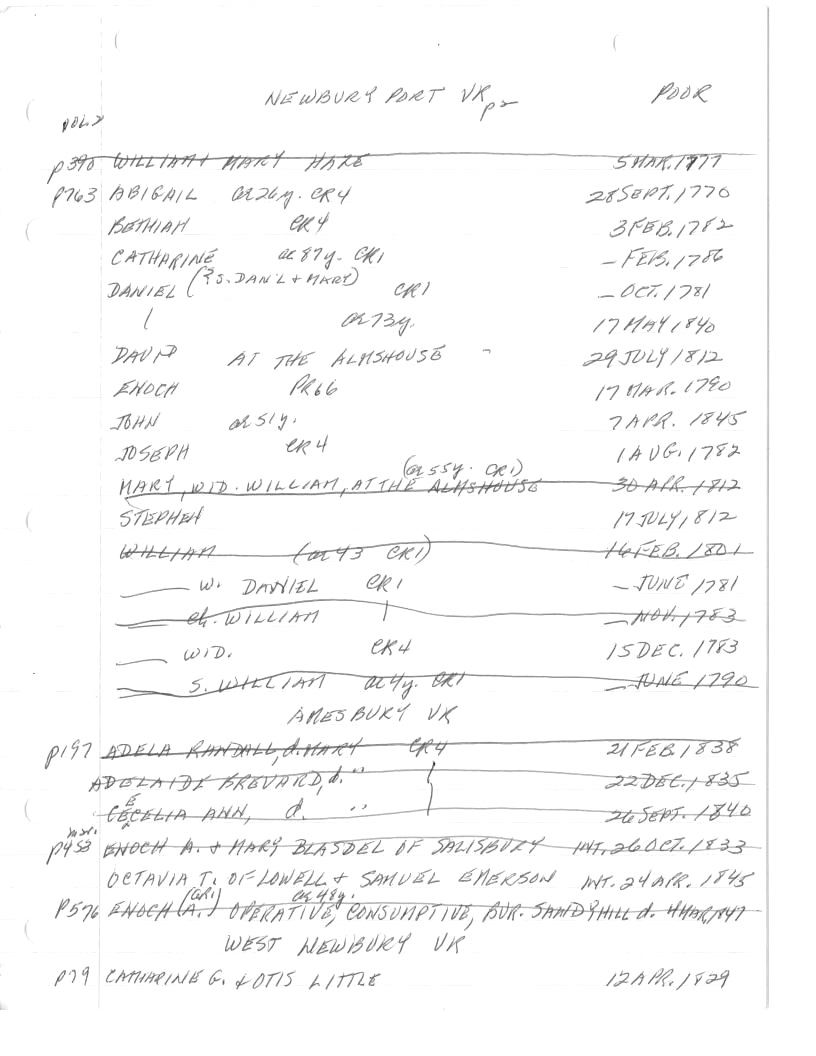 NEWBURY PORT VR p2 POOR
VOL. 2
p390 WILLIAM & MARY HALE 5 MAR. 1777
p763 ABIGAIL ae 26y. CR4 28 SEPT. 1770
BETHIAH CR4 3 FEB. 1782
CATHARINE ae 87y. CR1 – FEB. 1786
DANIEL (?S. DAN'L & MARY) CR1 – OCT. 1781
ae 73y. 17 MAY 1840
DAVID AT THE ALMSHOUSE 29 JULY 1812
ENOCH PR66 17 MAR. 1790
JOHN ae 51y. 7 APR. 1845
JOSEPH CR4 1 AUG. 1782
(ae 55y. CR1)
MARY, WID. WILLIAM, AT THE ALMSHOUSE 30 APR. 1812
STEPHEN 17 JULY 1812
WILLIAM (ae 43 CR1) 16 FEB. 1801
—— W. DANIEL CR1 – JUNE 1781
—— ch. WILLIAM – NOV. 1783
—— WID. CR4 15 DEC. 1783
—— S. WILLIAM ae 4y. CR1 – JUNE 1790
AMESBURY VR
p197 ADELA RANDALL, d. MARY CR4 21 FEB. 1838
ADELAIDE BREVARD, d. " 22 DEC. 1835
CECELIA ANN, d. " 26 SEPT. 1840
mar.
p453 ENOCH A. & MARY BLASDEL OF SALISBURY INT. 26 OCT. 1833
OCTAVIA T. OF LOWELL & SAMUEL EMERSON INT. 24 APR. 1845
(CR1) ae 48y.
p576 ENOCH (A.) OPERATIVE, CONSUMPTIVE, BUR. SANDYHILL d. 4 MAR. 1847
WEST NEWBURY VR
p79 CATHARINE G. & OTIS LITTLE 12 APR. 1829